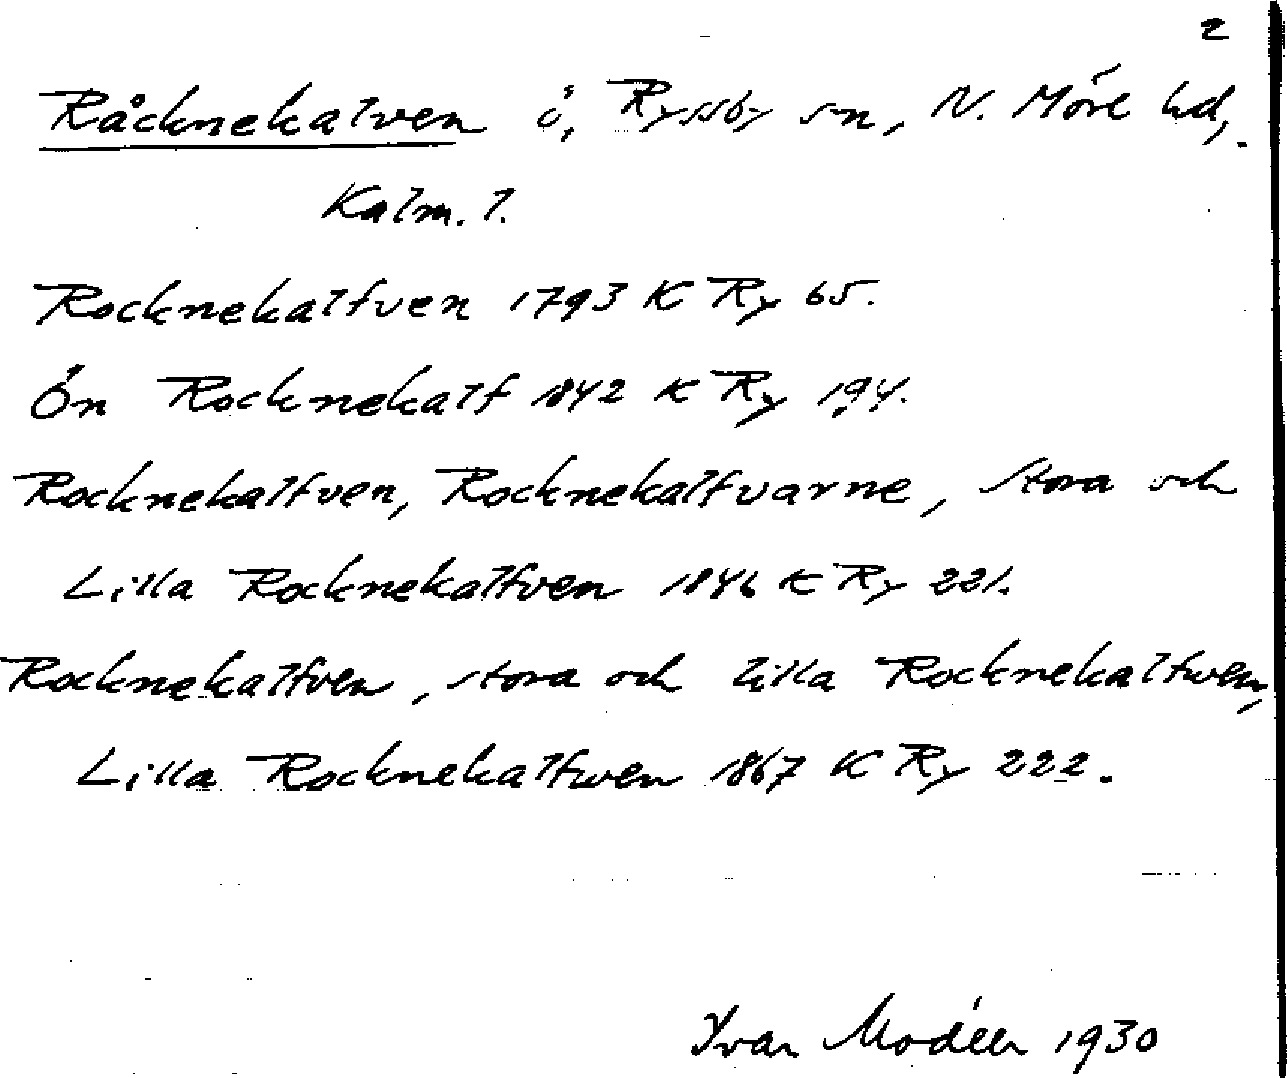 2
Råcknekalven ö, Ryssby sn, N. Möre hd,
Kalm. l.
Rocknekalfven 1793 K Ry 65.
Ön Rocknekalf 1842 K Ry 194.
Rocknekalfven, Rocknekalfvarne, Stora och
Lilla Rocknekalfven 1846 K Ry 221.
Rocknekalfven, stora och lilla Rocknekalfwen,
Lilla Rocknekalfwen 1867 K Ry 222.
Ivar Modéer 1930